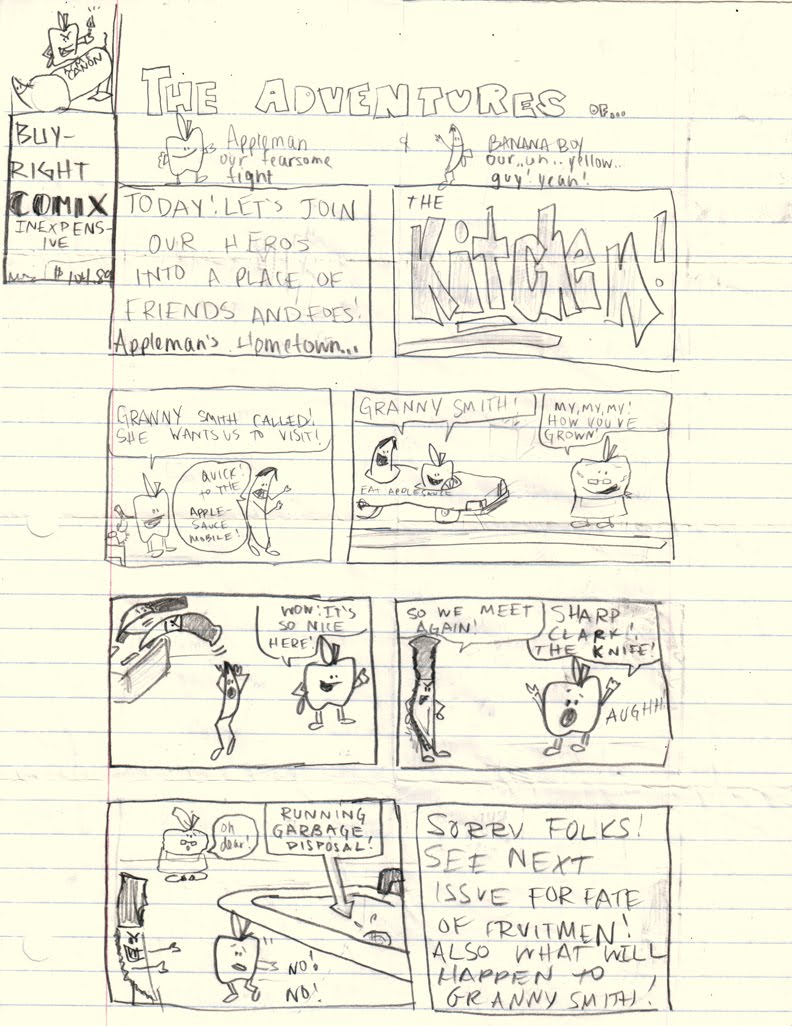 CANON
BUY-
RIGHT
COMIX
INEXPENS-
IVE
THE ADVENTURES OF...
Appleman
our fearsome
fight
&
BANANA BOY
our..uh..yellow..
guy! yeah!
TODAY! LET'S JOIN
OUR HEROS
INTO A PLACE OF
FRIENDS AND FOES!
Appleman's Hometown...
THE
Kitchen!
GRANNY SMITH CALLED!
SHE WANTS US TO VISIT!
QUICK!
TO THE
APPLE-
SAUCE
MOBILE!
GRANNY SMITH!
MY, MY, MY!
HOW YOU'VE
GROWN!
EAT APPLESAUCE
WOW! IT'S
SO NICE
HERE!
SO WE MEET
AGAIN!
SHARP
CLARK!
THE KNIFE!
AUGHH
oh
dear!
RUNNING
GARBAGE
DISPOSAL!
NO!
NO!
SORRY FOLKS!
SEE NEXT
ISSUE FOR FATE
OF FRUITMEN!
ALSO WHAT WILL
HAPPEN TO
GRANNY SMITH!